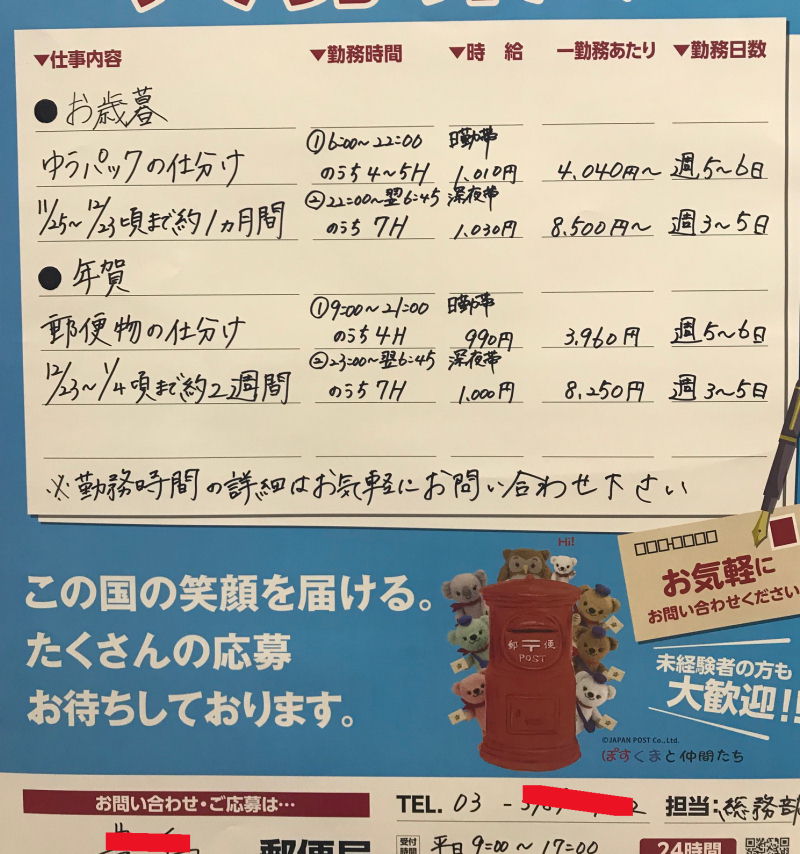 ▼仕事内容 ▼勤務時間 ▼時 給 一勤務あたり ▼勤務日数
●お歳暮
①6:00～22:00 日勤帯
ゆうパックの仕分け のうち4～5H 1.010円 4.040円～ 週5～6日
②22:00～翌6:45 深夜帯
11/25～12/23頃まで約1ヵ月間 のうち 7H 1.030円 8.500円～ 週3～5日
●年賀
①9:00～21:00 日勤帯
郵便物の仕分け のうち4H 990円 3.960円 週5～6日
②23:00～翌6:45 深夜帯
12/23～1/4頃まで約2週間 のうち7H 1.000円 8.250円 週3～5日
※勤務時間の詳細はお気軽にお問い合わせ下さい
Hi!
お気軽に
お問い合わせください
この国の笑顔を届ける。
たくさんの応募
お待ちしております。
郵〒便
POST
未経験者の方も
大歓迎!!
©JAPAN POST Co.,Ltd.
ぽすくまと仲間たち
お問い合わせ・ご応募は…
TEL. 03 - 担当:総務部
郵便局
受付時間 平日9:00～17:00
24時間